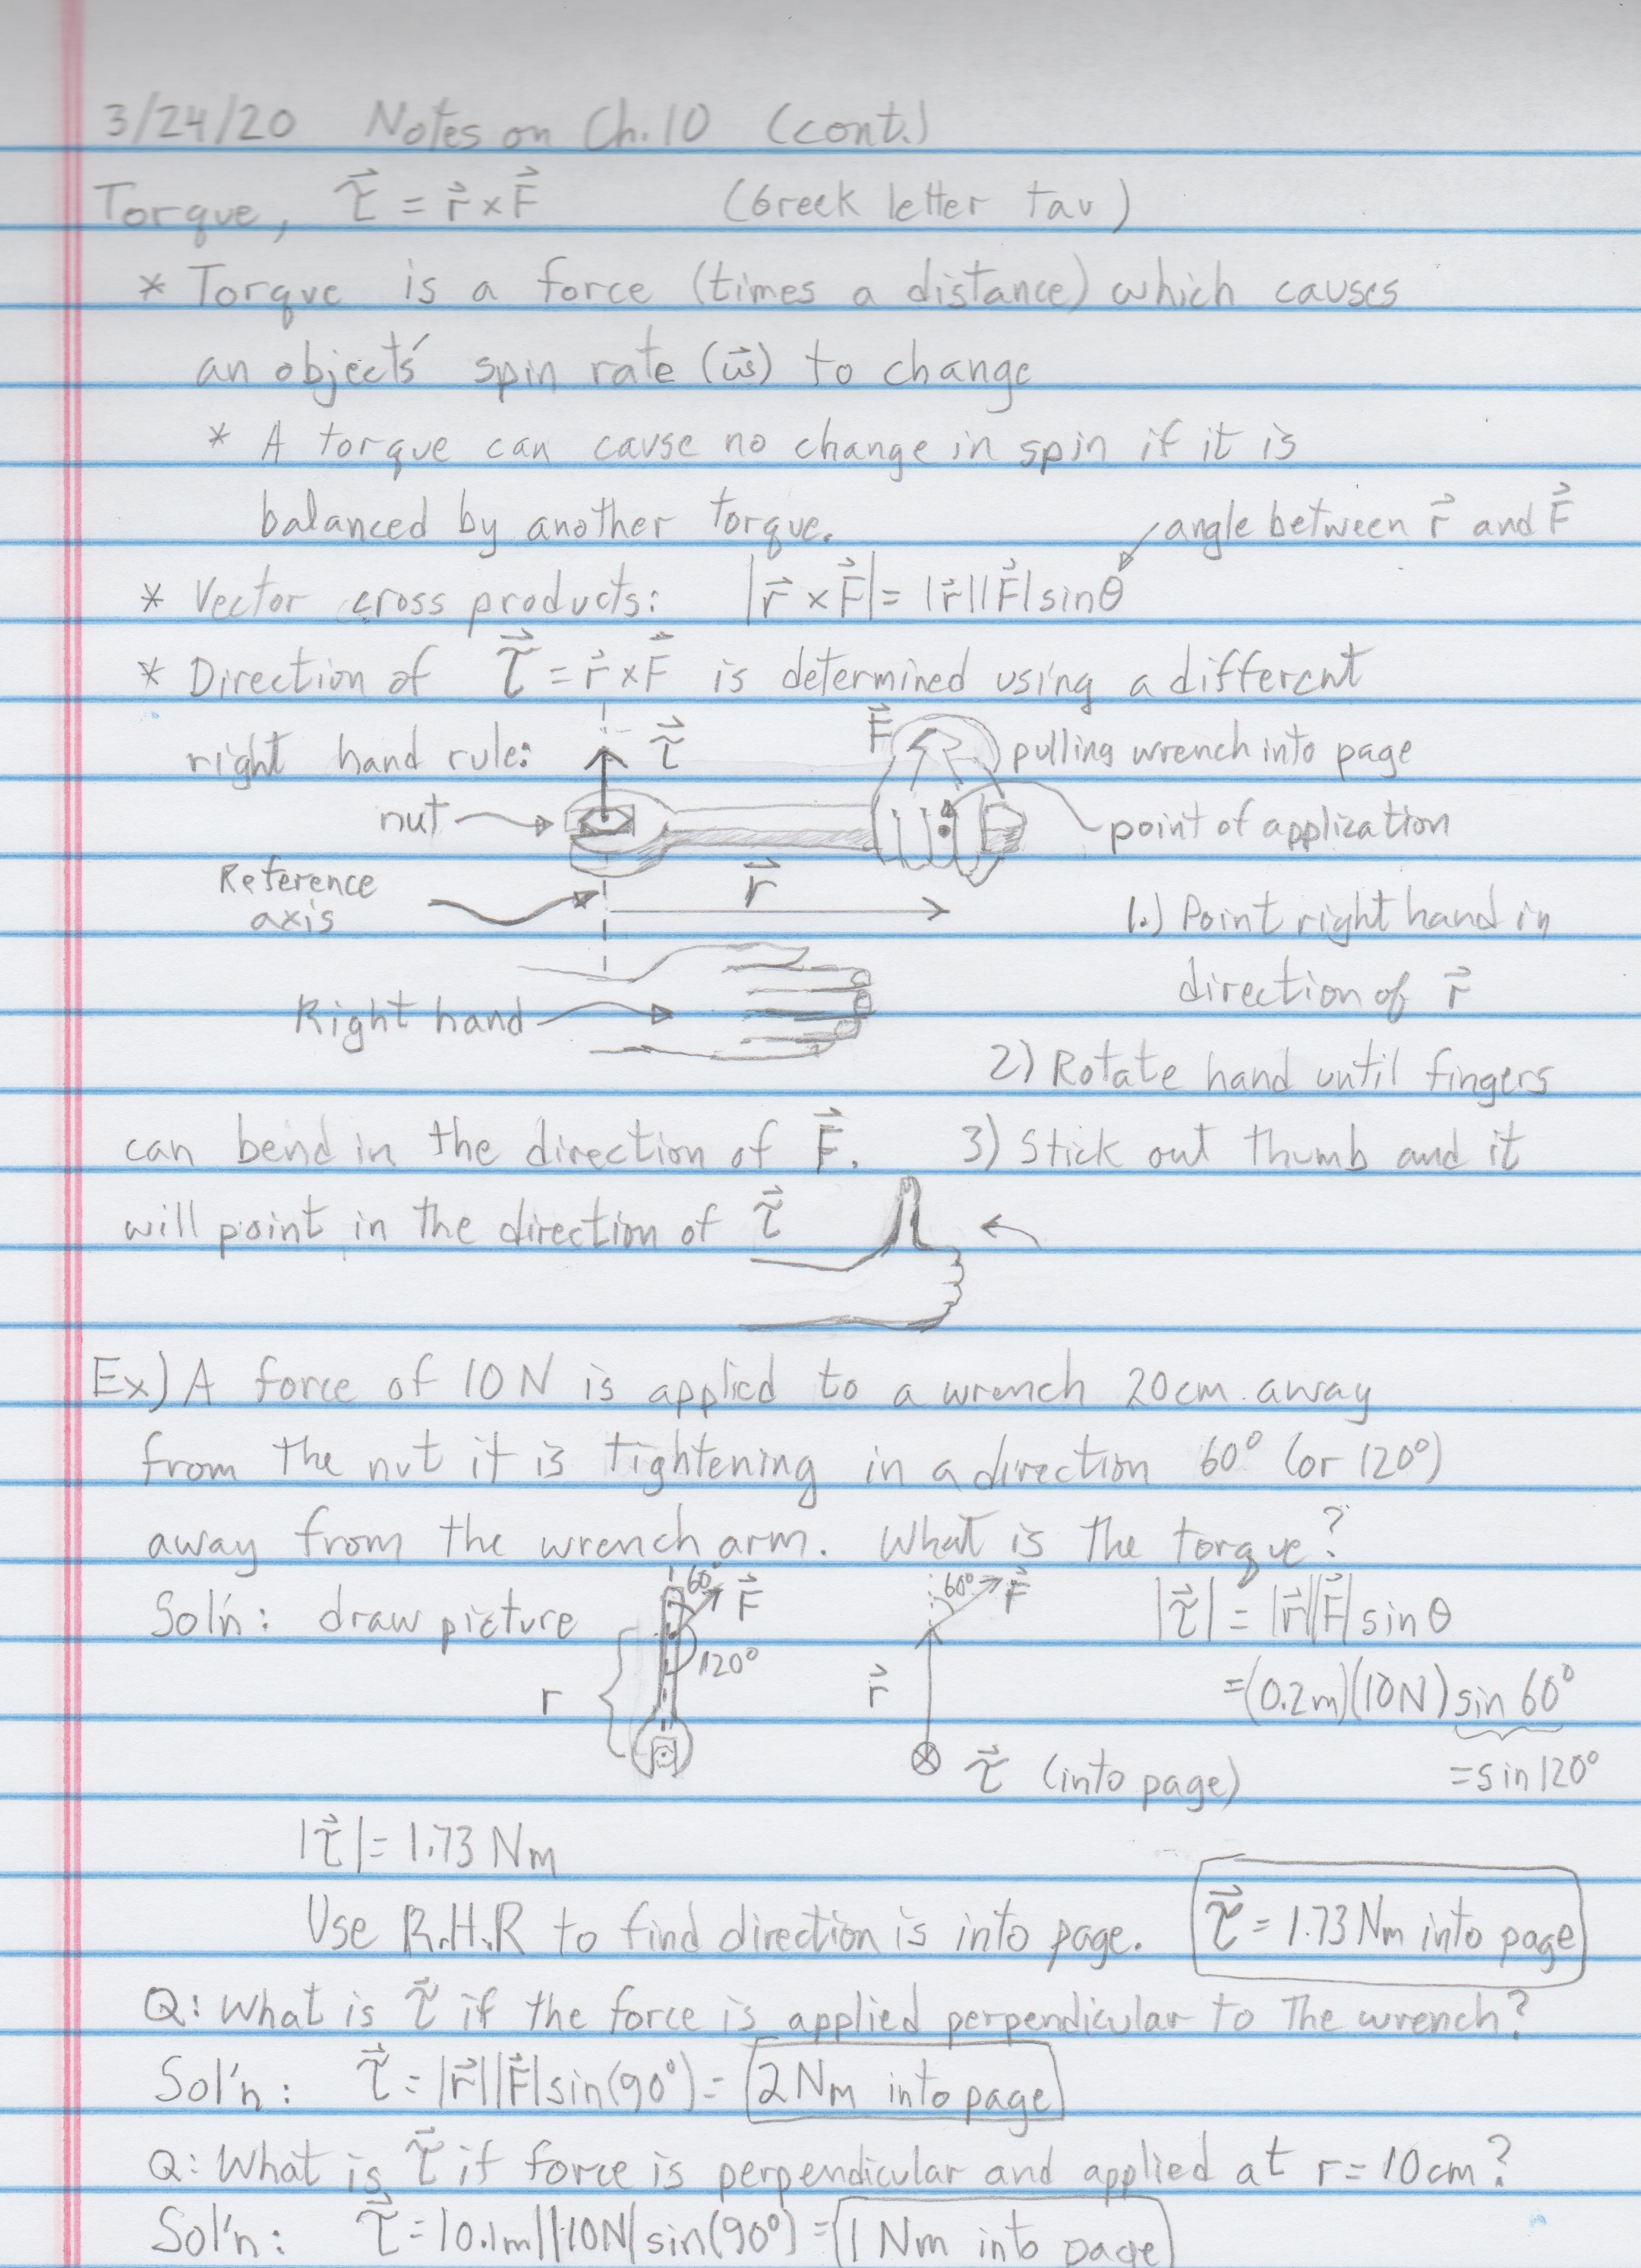 3/24/20 Notes on Ch. 10 (cont.)
Torque, τ⃗ = r⃗ × F⃗ (Greek letter tau)
* Torque is a force (times a distance) which causes
an objects' spin rate (ω⃗) to change
* A torque can cause no change in spin if it is
balanced by another torque.
angle between r⃗ and F⃗
* Vector cross products: |r⃗ × F⃗| = |r⃗||F⃗| sinθ
* Direction of τ⃗ = r⃗ × F⃗ is determined using a different
right hand rule:
τ⃗
F⃗
pulling wrench into page
nut
point of application
Reference
axis
r⃗
1.) Point right hand in
direction of r⃗
Right hand
2) Rotate hand until fingers
can bend in the direction of F⃗. 3) Stick out thumb and it
will point in the direction of τ⃗
Ex) A force of 10 N is applied to a wrench 20cm away
from the nut it is tightening in a direction 60° (or 120°)
away from the wrench arm. What is the torque?
Sol'n: draw picture
60° F⃗
120°
r
60° F⃗
r⃗
τ⃗ (into page)
|τ⃗| = |r⃗||F⃗| sinθ
=(0.2m)(10N) sin 60°
=sin120°
|τ⃗| = 1.73 Nm
Use R.H.R to find direction is into page. τ⃗ = 1.73 Nm into page
Q: What is τ⃗ if the force is applied perpendicular to the wrench?
Sol'n: τ⃗ = |r⃗||F⃗| sin(90°) = 2 Nm into page
Q: What is τ⃗ if force is perpendicular and applied at r = 10cm?
Sol'n: τ⃗ = |0.1m||10N| sin(90°) = 1 Nm into page